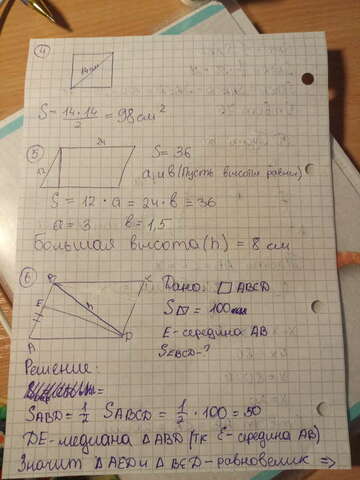 4
14см
S = 14·14/2 = 98 см²
5
24
12
S = 36
a и в (Пусть высоты равны)
S = 12 · a = 24 · в = 36
a = 3 в = 1,5
Большая высота (h) = 8 см
6
B C
E
A D
Дано: ▱ ABCD
S▱ = 100
E - середина AB
S EBCD - ?
Решение:
S ABD = 1/2 S ABCD = 1/2 · 100 = 50
DE - медиана Δ ABD (тк E - середина AB)
Значит Δ AED и Δ BED - равновелик =>